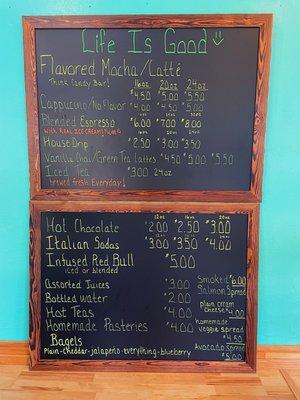 Life Is Good
Flavored Mocha/Latté
Think Candy Bar! 16oz 20oz 24oz
$4.50 $5.00 $5.50
Cappucino/No Flavor $4.00 $4.50 $5.00
Blended Espresso $6.00 $7.00 $8.00
with REAL ICE CREAM!
House Drip $2.50 $3.00 $3.50
Vanilla Chai/Green Tea Lattes $4.50 $5.00 $5.50
Iced Tea $3.00 24oz
brewed fresh Everyday!
12oz 16oz 20oz
Hot Chocolate $2.00 $2.50 $3.00
Italian Sodas $3.00 $3.50 $4.00
Infused Red Bull $5.00
iced or blended
Assorted Juices $3.00
Bottled water $2.00
Hot Teas $4.00
Homemade Pasteries $4.00
Bagels
Plain-cheddar-jalapeño-everything-blueberry
Smoked $6.00
Salmon Spread
plain cream
cheese $4.00
homemade
veggie spread
$4.50
Avocado Spread
$5.00